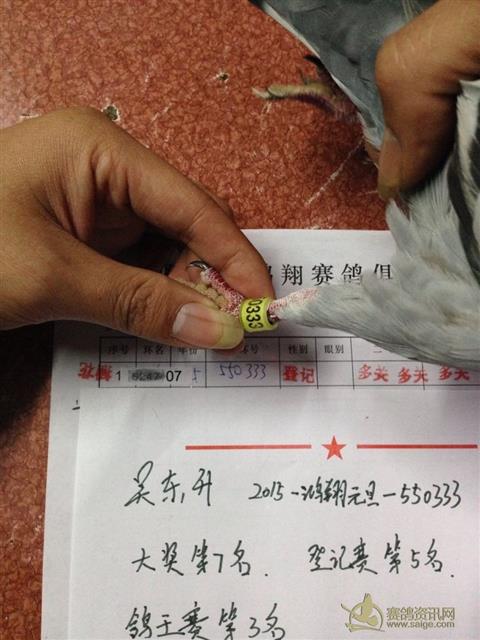 翔赛鸽俱
0333
序号 环名 年份 环号 性别 眼别 二
1 07 5 550333 登记 多关 多关 多关
吴东升 2015-鸿翔元旦-550333
大奖第7名. 登记赛第5名.
鸽王赛第3名
赛鸽资讯网
www.saige.com